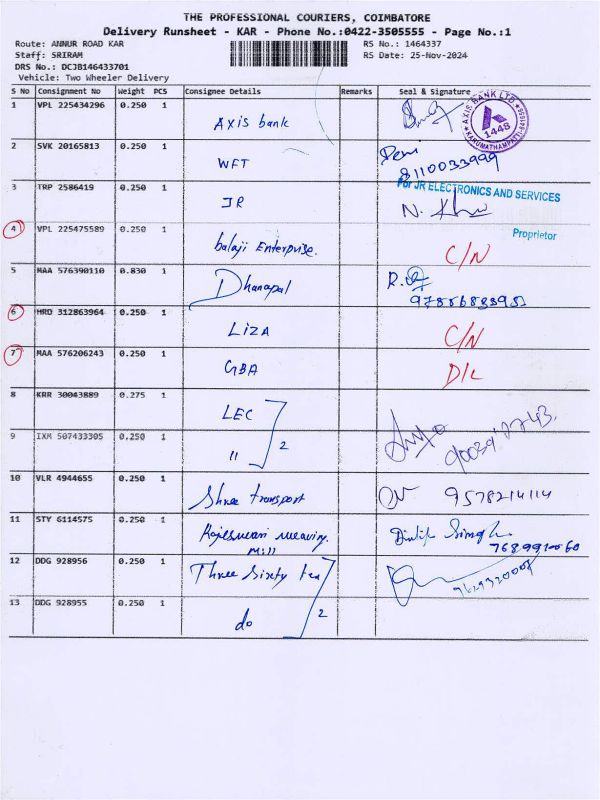 THE PROFESSIONAL COURIERS, COIMBATORE
Delivery Runsheet - KAR - Phone No.:0422-3505555 - Page No.:1
Route: ANNUR ROAD KAR RS No.: 1464337
Staff: SRIRAM RS Date: 25-Nov-2024
DRS No.: DCJB146433701
Vehicle: Two Wheeler Delivery
S No Consignment No Weight PCS Consignee Details Remarks Seal & Signature
1 VPL 225434296 0.250 1 Axis bank
AXIS BANK LTD.
1448
2 SVK 20165813 0.250 1 WFT
8110033999
3 TRP 2586419 0.250 1 JR
For JR ELECTRONICS AND SERVICES
Proprietor
4 VPL 225475589 0.250 1 balaji Enterprise. C/N
5 MAA 576390110 0.830 1 Dhanapal
6 HRD 312863964 0.250 1 LIZA C/N
7 MAA 576206243 0.250 1 GBA D/L
8 KRR 30043889 0.275 1 LEC
2
9 IXM 507433305 0.250 1 "
10 VLR 4944655 0.250 1 Shree transport 9578214114
11 STY 6114575 0.250 1 Rajeswari weaving.
Mill
7689910060
12 DDG 928956 0.250 1 Three Sixty tea
13 DDG 928955 0.250 1 do 2